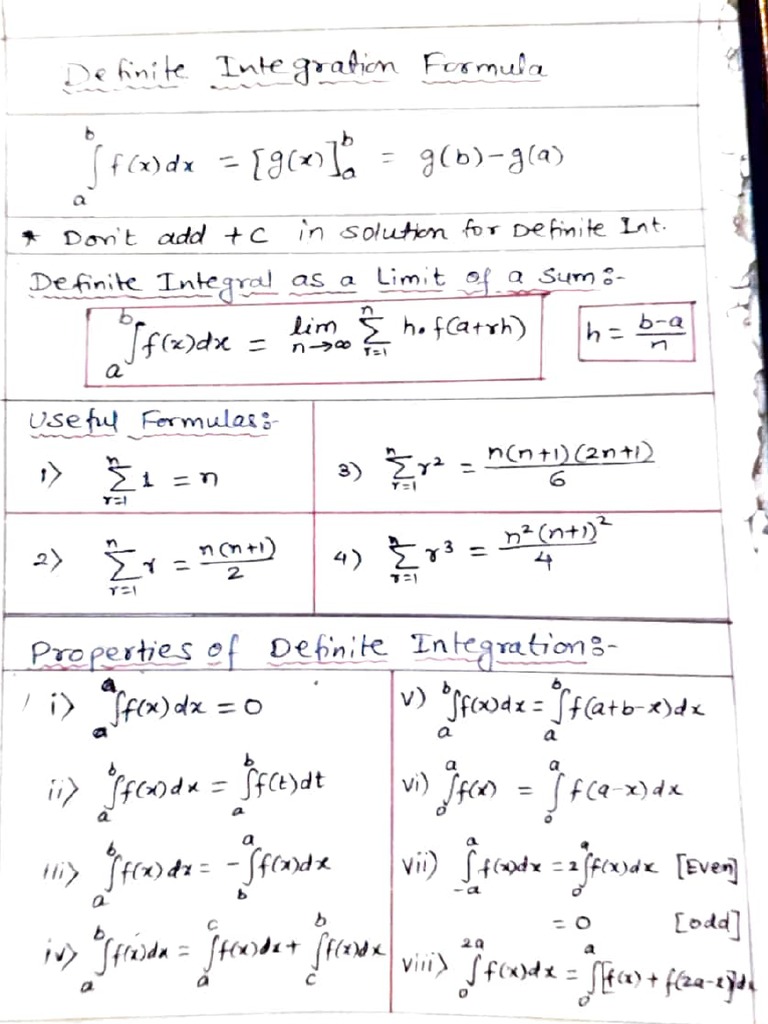 Definite Integration Formula
a∫b f(x) dx = [g(x)]ab = g(b)-g(a)
* Don't add +C in solution for Definite Int.
Definite Integral as a Limit of a Sum:-
a∫b f(x)dx = lim n→∞ nΣr=1 h.f(a+rh)  h = b-a/n
Useful Formulas:-
1) nΣr=1 1 = n
2) nΣr=1 r = n(n+1)/2
3) nΣr=1 r² = n(n+1)(2n+1)/6
4) nΣr=1 r³ = n²(n+1)²/4
Properties of Definite Integration:-
i) a∫a f(x) dx = 0
ii) a∫b f(x) dx = a∫b f(t) dt
iii) a∫b f(x) dx = - b∫a f(x)dx
iv) a∫b f(x)dx = a∫c f(x)dx + c∫b f(x)dx
v) a∫b f(x)dx = a∫b f(a+b-x)dx
vi) 0∫a f(x) = 0∫a f(a-x)dx
vii) -a∫a f(x)dx = 2 0∫a f(x)dx [Even]
= 0 [odd]
viii) 0∫2a f(x)dx = 0∫a [f(x) + f(2a-x)]dx